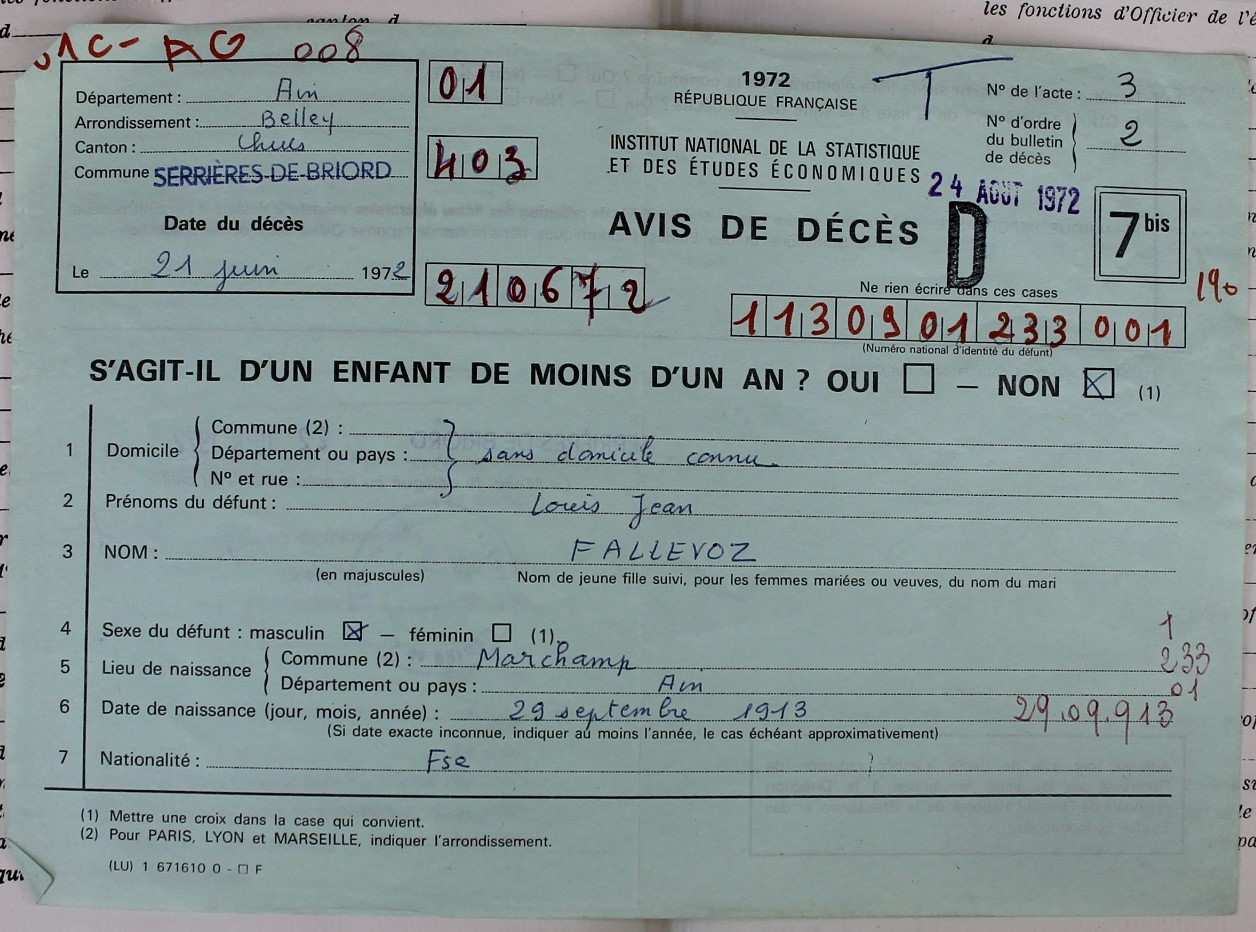 canton d
les fonctions d'Officier de l'é
01C-AG 008
Département : Ain
Arrondissement : Belley
Canton :
Commune SERRIÈRES-DE-BRIORD
Date du décès
Le 21 juin 1972
01
403
210672
1972
RÉPUBLIQUE FRANÇAISE
INSTITUT NATIONAL DE LA STATISTIQUE
ET DES ÉTUDES ÉCONOMIQUES
AVIS DE DÉCÈS
T
24 AOUT 1972
D
N° de l'acte : 3
N° d'ordre
du bulletin
de décès
2
7 bis
190
Ne rien écrire dans ces cases
1130901233001
(Numéro national d'identité du défunt)
S'AGIT-IL D'UN ENFANT DE MOINS D'UN AN ? OUI — NON (1)
1 Domicile
Commune (2) :
Département ou pays : sans domicile connu
N° et rue :
2 Prénoms du défunt : Louis Jean
3 NOM : FALLEVOZ
(en majuscules) Nom de jeune fille suivi, pour les femmes mariées ou veuves, du nom du mari
4 Sexe du défunt : masculin — féminin (1). 1
5 Lieu de naissance
Commune (2) : Marchamp 233
Département ou pays : Ain 01
6 Date de naissance (jour, mois, année) : 29 septembre 1913 29.09.913
(Si date exacte inconnue, indiquer au moins l'année, le cas échéant approximativement)
7 Nationalité : Fse
(1) Mettre une croix dans la case qui convient.
(2) Pour PARIS, LYON et MARSEILLE, indiquer l'arrondissement.
(LU) 1 671610 0 - □ F